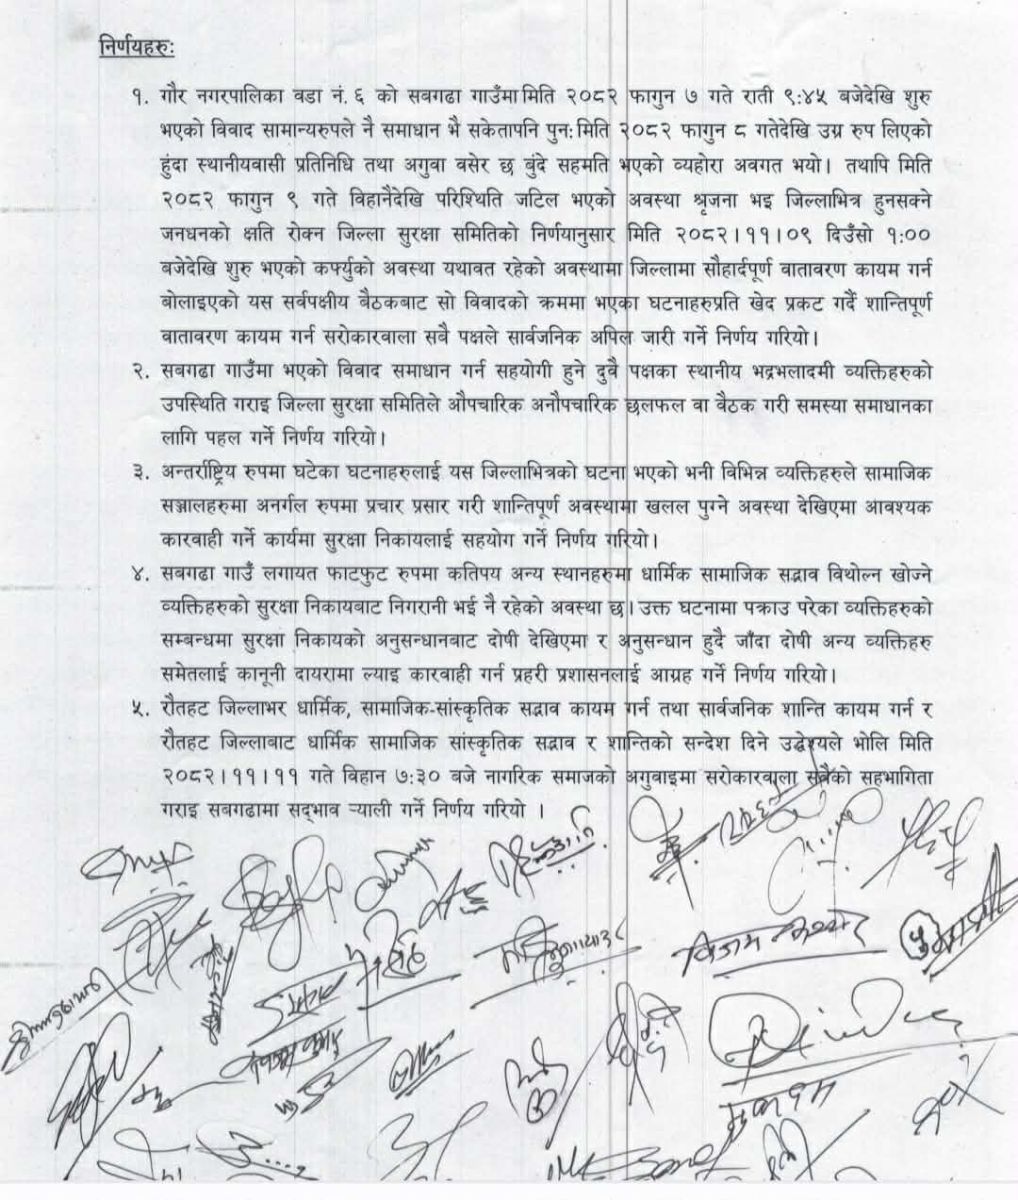 निर्णयहरु:
१. गौर नगरपालिका वडा नं. ६ को सबगढा गाउँमा मिति २०८२ फागुन ७ गते राती ९:४५ बजेदेखि शुरु
भएको विवाद सामान्यरुपले नै समाधान भै सकेतापनि पुन: मिति २०८२ फागुन ८ गतेदेखि उग्र रुप लिएको
हुंदा स्थानीयवासी प्रतिनिधि तथा अगुवा वसेर छ बुंदे सहमति भएको व्यहोरा अवगत भयो। तथापि मिति
२०८२ फागुन ९ गते विहानैदेखि परिश्थिति जटिल भएको अवस्था श्रृजना भइ जिल्लाभित्र हुनसक्ने
जनधनको क्षति रोक्न जिल्ला सुरक्षा समितिको निर्णयानुसार मिति २०८२।११।०९ दिउँसो १:००
बजेदेखि शुरु भएको कर्फ्युको अवस्था यथावत रहेको अवस्थामा जिल्लामा सौहार्दपूर्ण वातावरण कायम गर्न
बोलाइएको यस सर्वपक्षीय बैठकबाट सो विवादको क्रममा भएका घटनाहरुप्रति खेद प्रकट गर्दै शान्तिपूर्ण
वातावरण कायम गर्न सरोकारवाला सबै पक्षले सार्वजनिक अपिल जारी गर्ने निर्णय गरियो।
२. सबगढा गाउँमा भएको विवाद समाधान गर्न सहयोगी हुने दुवै पक्षका स्थानीय भद्रभलादमी व्यक्तिहरुको
उपस्थिति गराइ जिल्ला सुरक्षा समितिले औपचारिक अनौपचारिक छलफल वा बैठक गरी समस्या समाधानका
लागि पहल गर्ने निर्णय गरियो।
३. अन्तर्राष्ट्रिय रुपमा घटेका घटनाहरुलाई यस जिल्लाभित्रको घटना भएको भनी विभिन्न व्यक्तिहरुले सामाजिक
सञ्जालहरुमा अनर्गल रुपमा प्रचार प्रसार गरी शान्तिपूर्ण अवस्थामा खलल पुग्ने अवस्था देखिएमा आवश्यक
कारवाही गर्ने कार्यमा सुरक्षा निकायलाई सहयोग गर्ने निर्णय गरियो।
४. सबगढा गाउँ लगायत फाटफुट रुपमा कतिपय अन्य स्थानहरुमा धार्मिक सामाजिक सद्भाव विथोल्न खोज्ने
व्यक्तिहरुको सुरक्षा निकायबाट निगरानी भई नै रहेको अवस्था छ। उक्त घटनामा पक्राउ परेका व्यक्तिहरुको
सम्बन्धमा सुरक्षा निकायको अनुसन्धानबाट दोषी देखिएमा र अनुसन्धान हुदै जाँदा दोषी अन्य व्यक्तिहरु
समेतलाई कानूनी दायरामा ल्याइ कारवाही गर्न प्रहरी प्रशासनलाई आग्रह गर्ने निर्णय गरियो।
५. रौतहट जिल्लाभर धार्मिक, सामाजिक-सांस्कृतिक सद्भाव कायम गर्न तथा सार्वजनिक शान्ति कायम गर्न र
रौतहट जिल्लाबाट धार्मिक सामाजिक सांस्कृतिक सद्भाव र शान्तिको सन्देश दिने उद्धेश्यले भोलि मिति
२०८२।११।११ गते विहान ७:३० बजे नागरिक समाजको अगुवाइमा सरोकारवाला सबैको सहभागिता
गराइ सबगढामा सद्‌भाव ऱ्याली गर्ने निर्णय गरियो ।